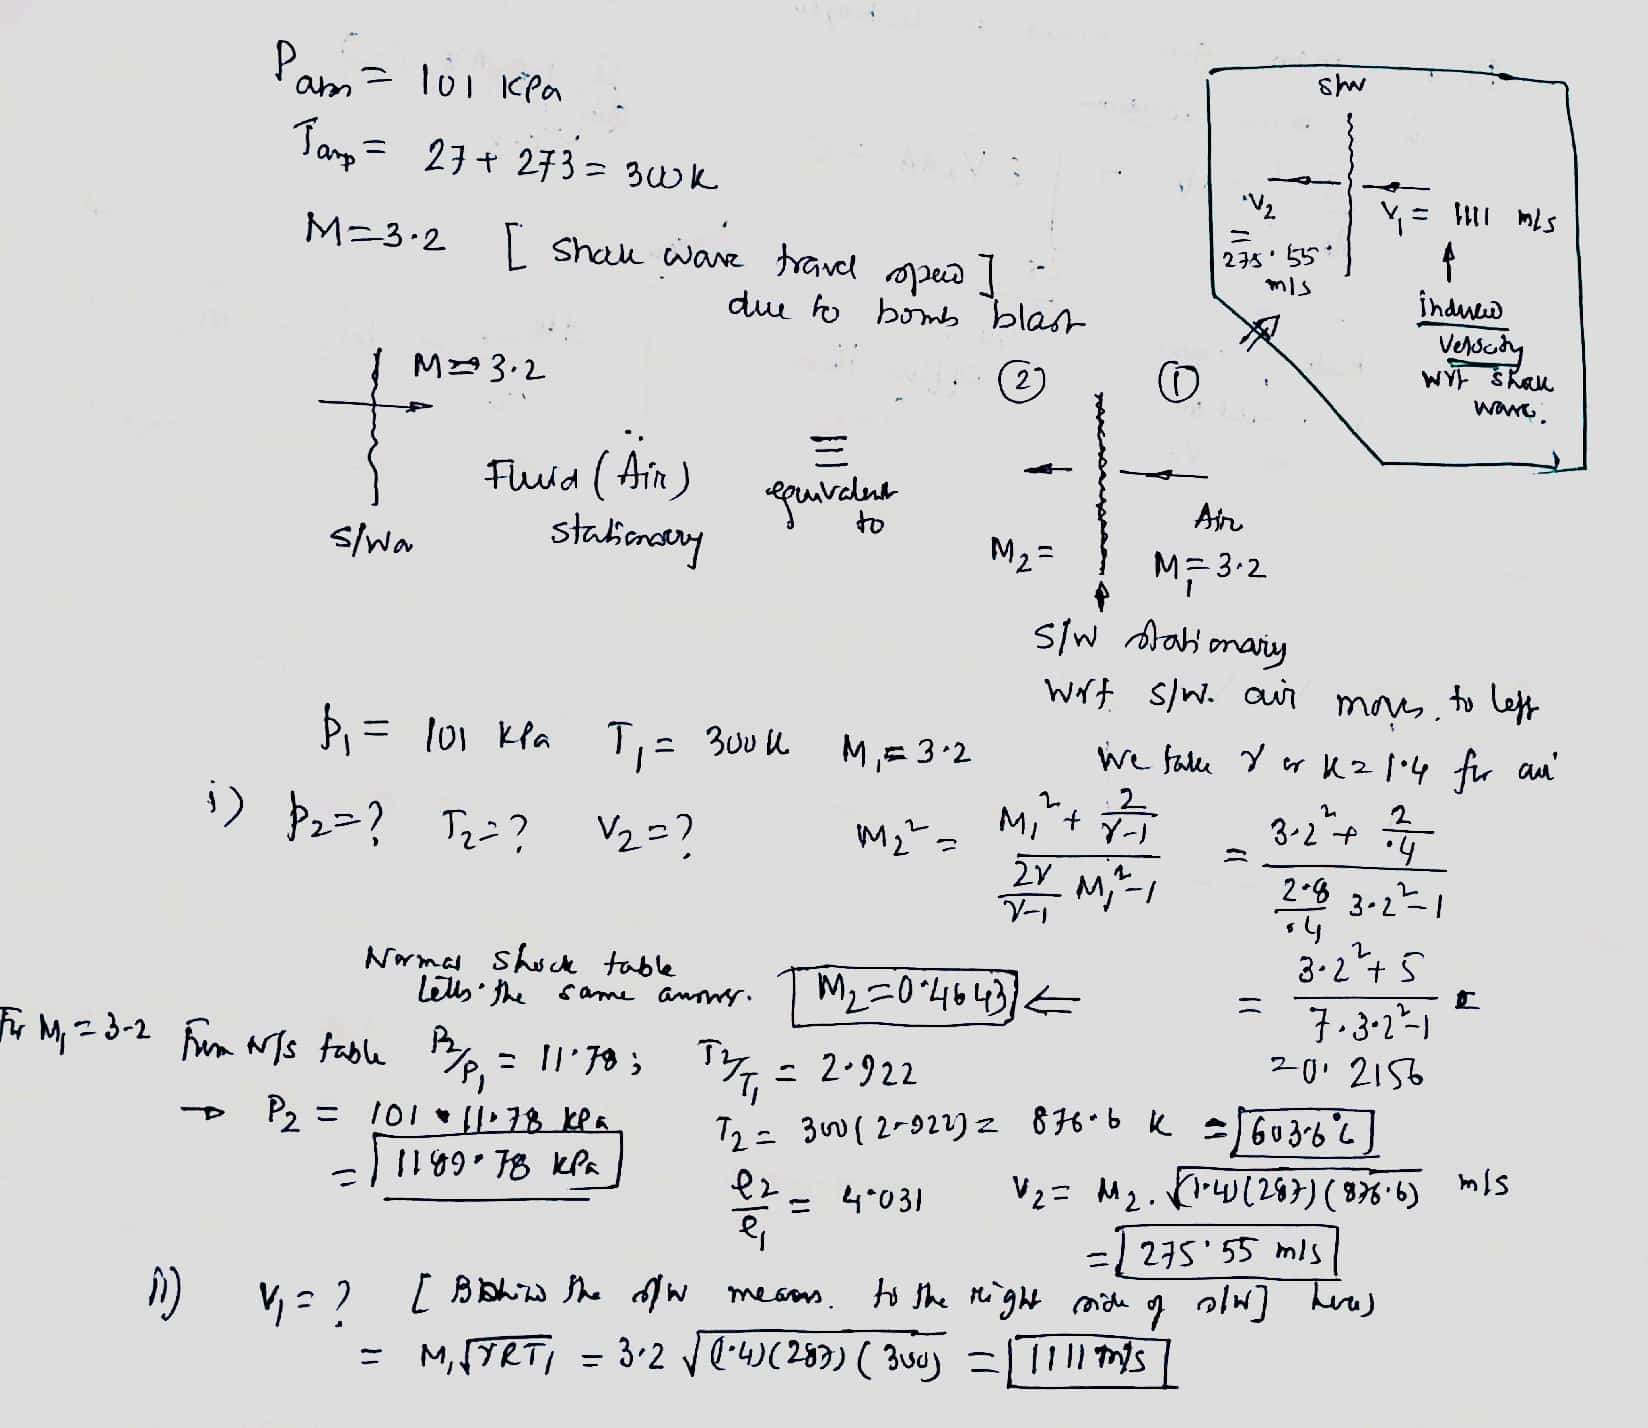 Pam = 101 KPa
Tamp = 27 + 273 = 300 K
M = 3.2 [ Shock wave travel speed ]
due to bomb blast
S/W
V2 = 275.55 m/s
V1 = 1111 m/s
induced
Velocity
wrt shock
wave.
M = 3.2
Fluid (Air)
stationary
S/Wa
≡
equivalent
to
② ①
M2 =
Air
M1 = 3.2
S/W stationary
wrt S/W. air moves to left
P1 = 101 KPa T1 = 300 K M1 = 3.2
We take γ or K = 1.4 for air
i) P2 = ? T2 = ? V2 = ?
M2² = (M1² + 2/(γ-1)) / (2γ/(γ-1) M1² - 1) = (3.2² + 2/.4) / (2.8/.4 3.2² - 1)
= (3.2² + 5) / (7.3.2² - 1) =
= 0.2156
Normal shock table
tells the same answer. M2 = 0.4643 ⇐
For M1 = 3.2 From N/S table P2/P1 = 11.78 ; T2/T1 = 2.922
→ P2 = 101 * 11.78 KPa
= 1189.78 KPa
T2 = 300 (2.922) = 876.6 K = 603.6°C
ρ2/ρ1 = 4.031
V2 = M2 . √(1.4)(287)(876.6) m/s
= 275.55 m/s
ii) V1 = ? [ Behind the S/W means to the right side of S/W] here)
= M1 √γRT1 = 3.2 √(1.4)(287)(300) = 1111 m/s